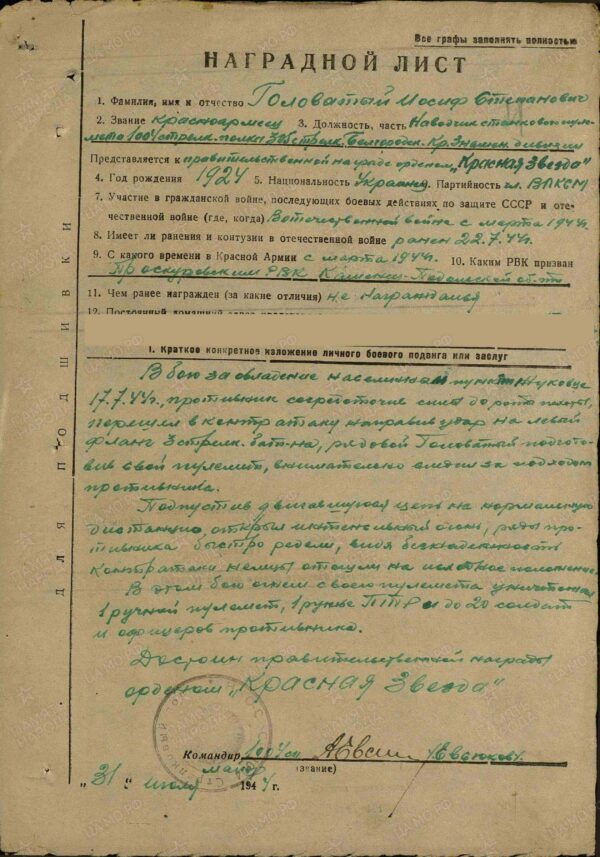 Все графы заполнять полностью
НАГРАДНОЙ ЛИСТ
1. Фамилия, имя и отчество Головатый Иосиф Степанович
2. Звание Красноармеец 3. Должность, часть Наводчик станкового пуле-
мета 1004 стрелк. полка 305 стрелк. Белгородск. Кр. Знамен. дивизии
Представляется к правительственной награде орденом „Красная Звезда"
4. Год рождения 1924 5. Национальность Украинец Партийность чл. ВЛКСМ
7. Участие в гражданской войне, последующих боевых действиях по защите СССР и оте-
чественной войне (где, когда) В отечественной войне с марта 1944г.
8. Имеет ли ранения и контузии в отечественной войне ранен 22.7.44г.
9. С какого времени в Красной Армии с марта 1944г. 10. Каким РВК призван
Проскуровским РВК Каменец-Подольской обл.
11. Чем ранее награжден (за какие отличия) не награждался
1. Краткое конкретное изложение личного боевого подвига или заслуг
В бою за овладение населенным пунктом Жуковце
17.7.44г., противник сосредоточив силы до роты пехоты,
перешел в контратаку направив удар на левый
фланг 3 стрелк. бат-на, рядовой Головатый подгото-
вив свой пулемет, внимательно следил за подходом
противника.
Подпустив двигавшуюся цепь на нормальную
дистанцию открыл интенсивный огонь, ряды про-
тивника быстро редели, видя безнадежность
контратаки немцы отошли на исходное положение.
В этом бою огнем своего пулемета уничтожил
1 ручной пулемет, 1 ружье ПТР и до 20 солдат
и офицеров противника.
Достоин правительственной награды
орденом „Красная Звезда"
Командир 1004 сп /Евсюков/
майор (звание)
„31" июля 1944 г.
ДЛЯ ПОДШИВКИ